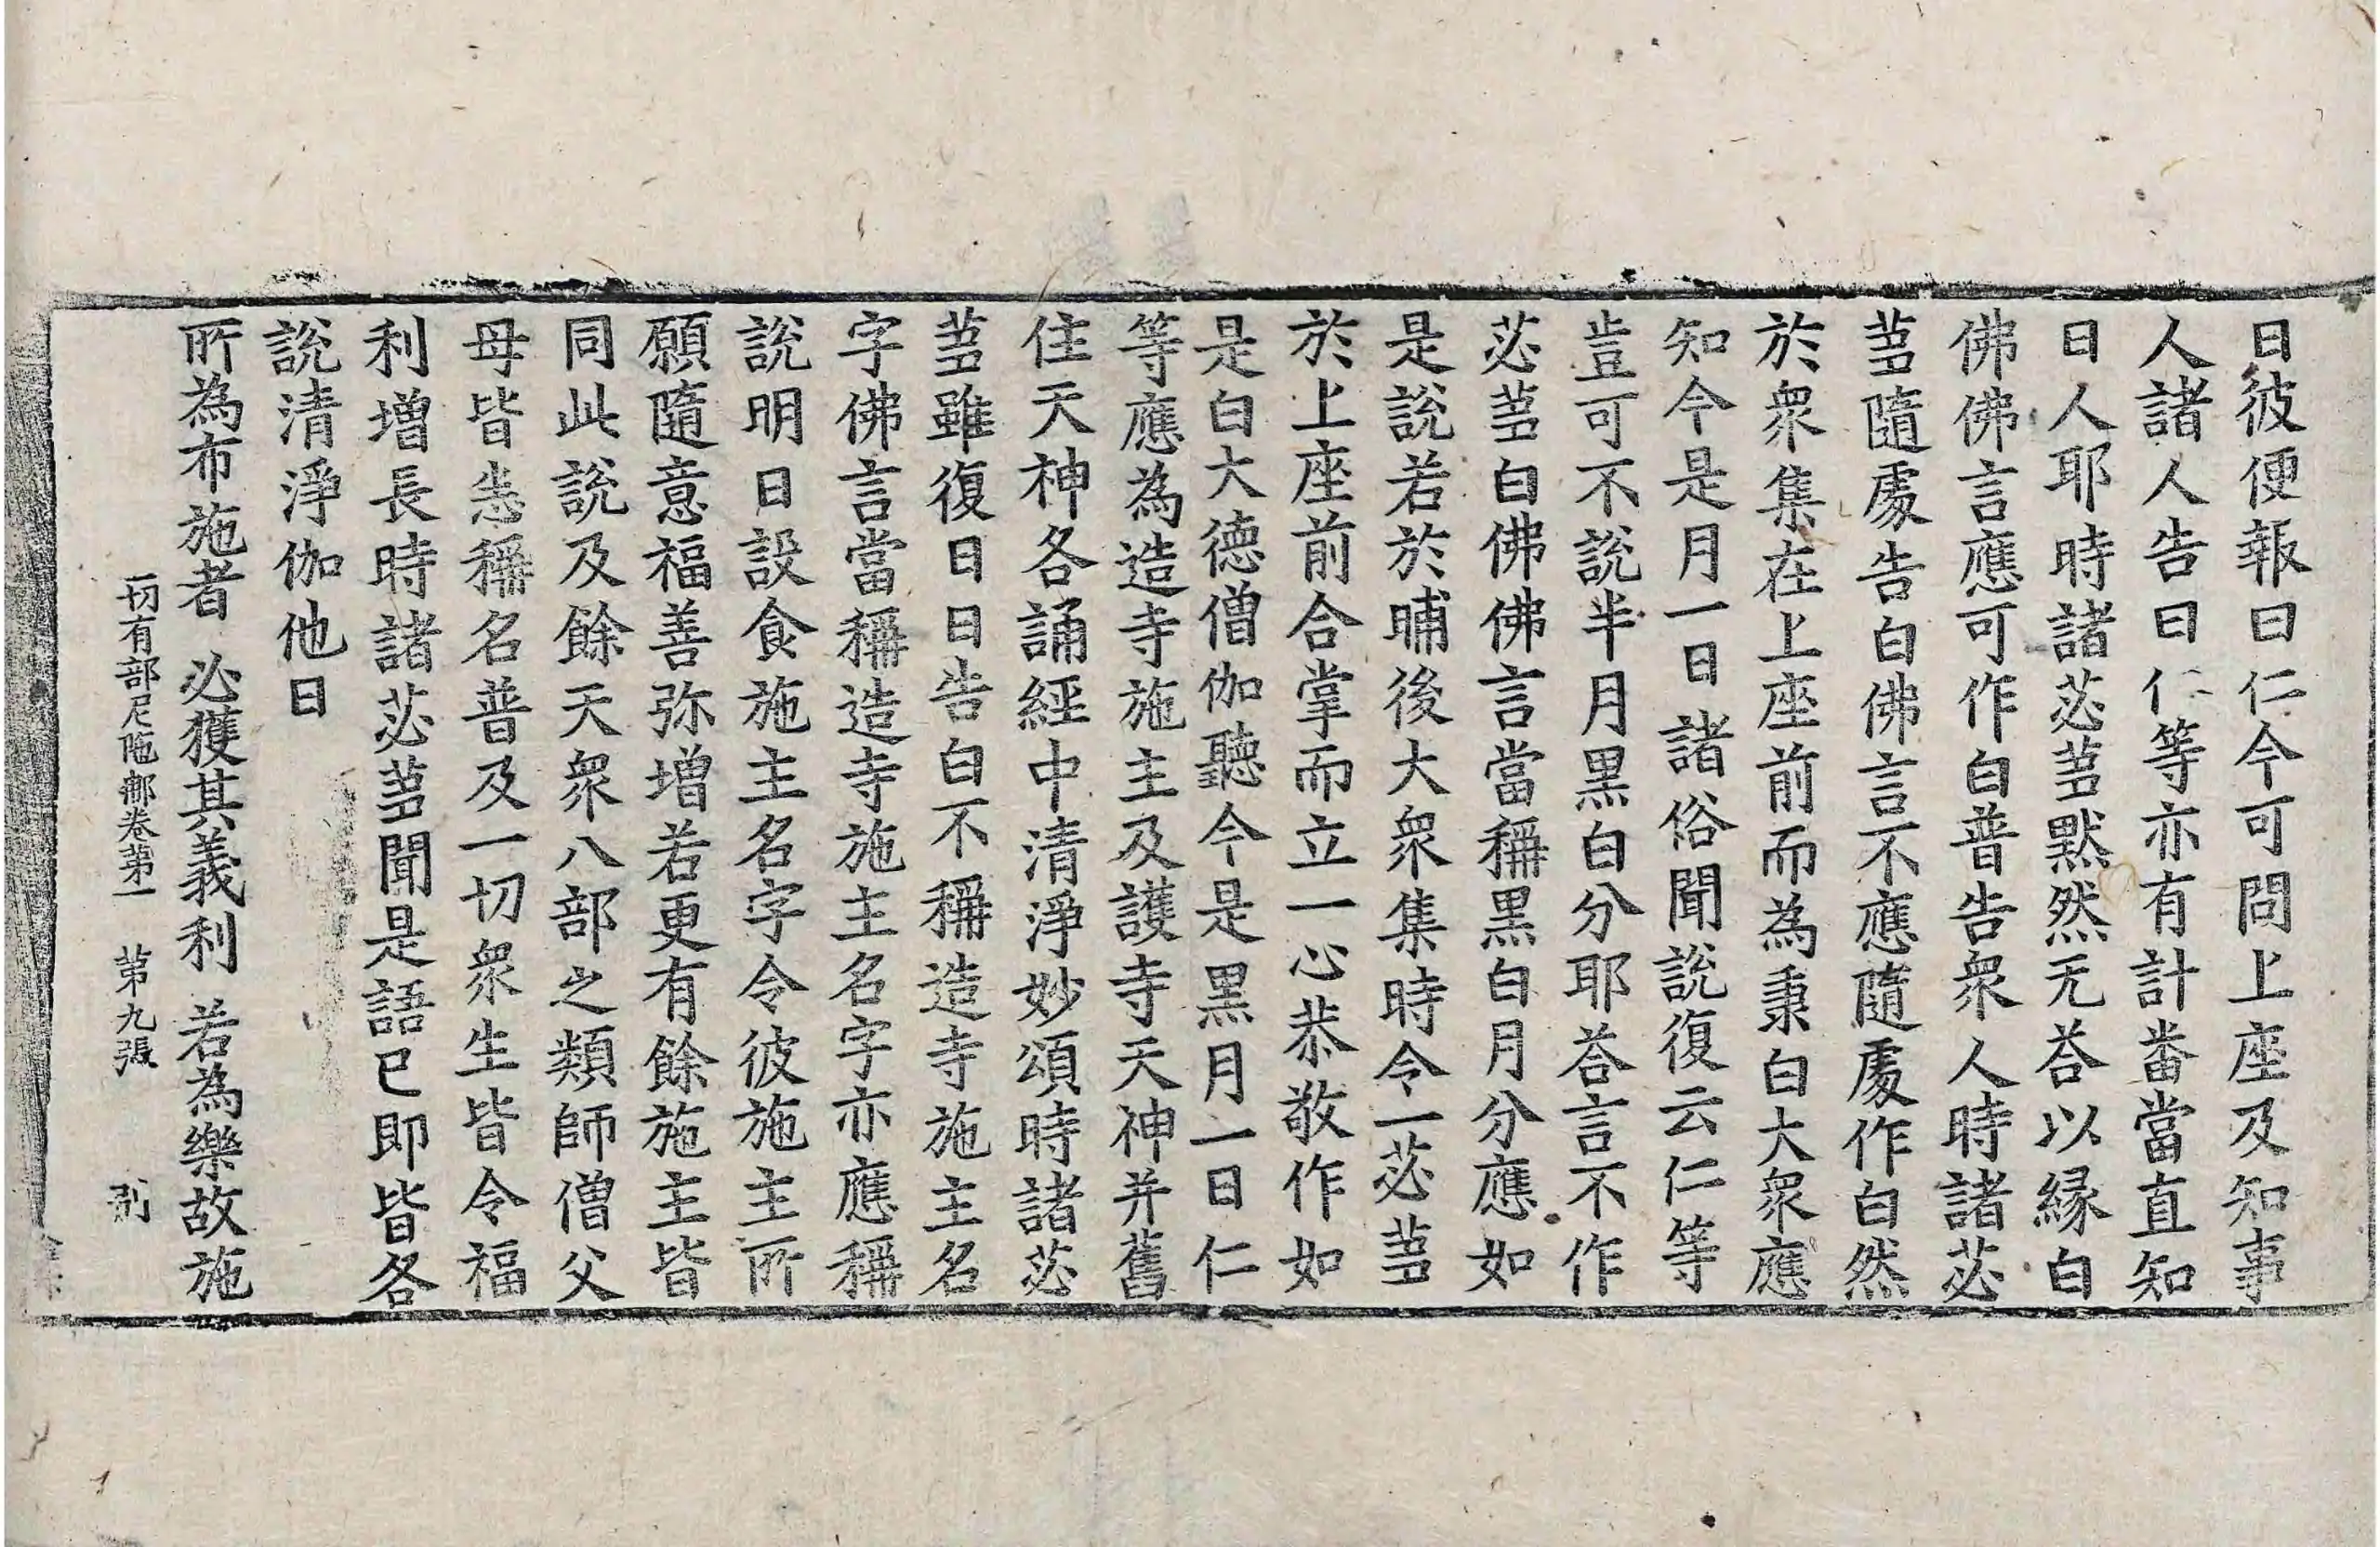 日彼便報曰仁今可問上座及知事
人諸人告曰仁等亦有計畨當直知
日人耶時諸苾蒭黙然无荅以縁白
佛佛言應可作白普告衆人時諸苾
蒭隨處告白佛言不應隨處作白然
於衆集在上座前而為秉白大衆應
知今是月一日諸俗聞說復云仁等
豈可不說半月黒白分耶荅言不作
苾蒭白佛佛言當稱黒白月分應如
是說若於晡後大衆集時令一苾蒭
於上座前合掌而立一心恭敬作如
是白大德僧伽聽今是黒月一日仁
等應為造寺施主及護寺天神并舊
住天神各誦經中清淨妙頌時諸苾
蒭雖復日日告白不稱造寺施主名
字佛言當稱造寺施主名字亦應稱
說明日設食施主名字令彼施主所
願隨意福善弥増若更有餘施主皆
同此說及餘天衆八部之類師僧父
母皆悉稱名普及一切衆生皆令福
利増長時諸苾蒭聞是語已即皆各
說清淨伽他曰
所為布施者 必獲其義利 若為樂故施
一切有部尼陁那卷第一 第九張